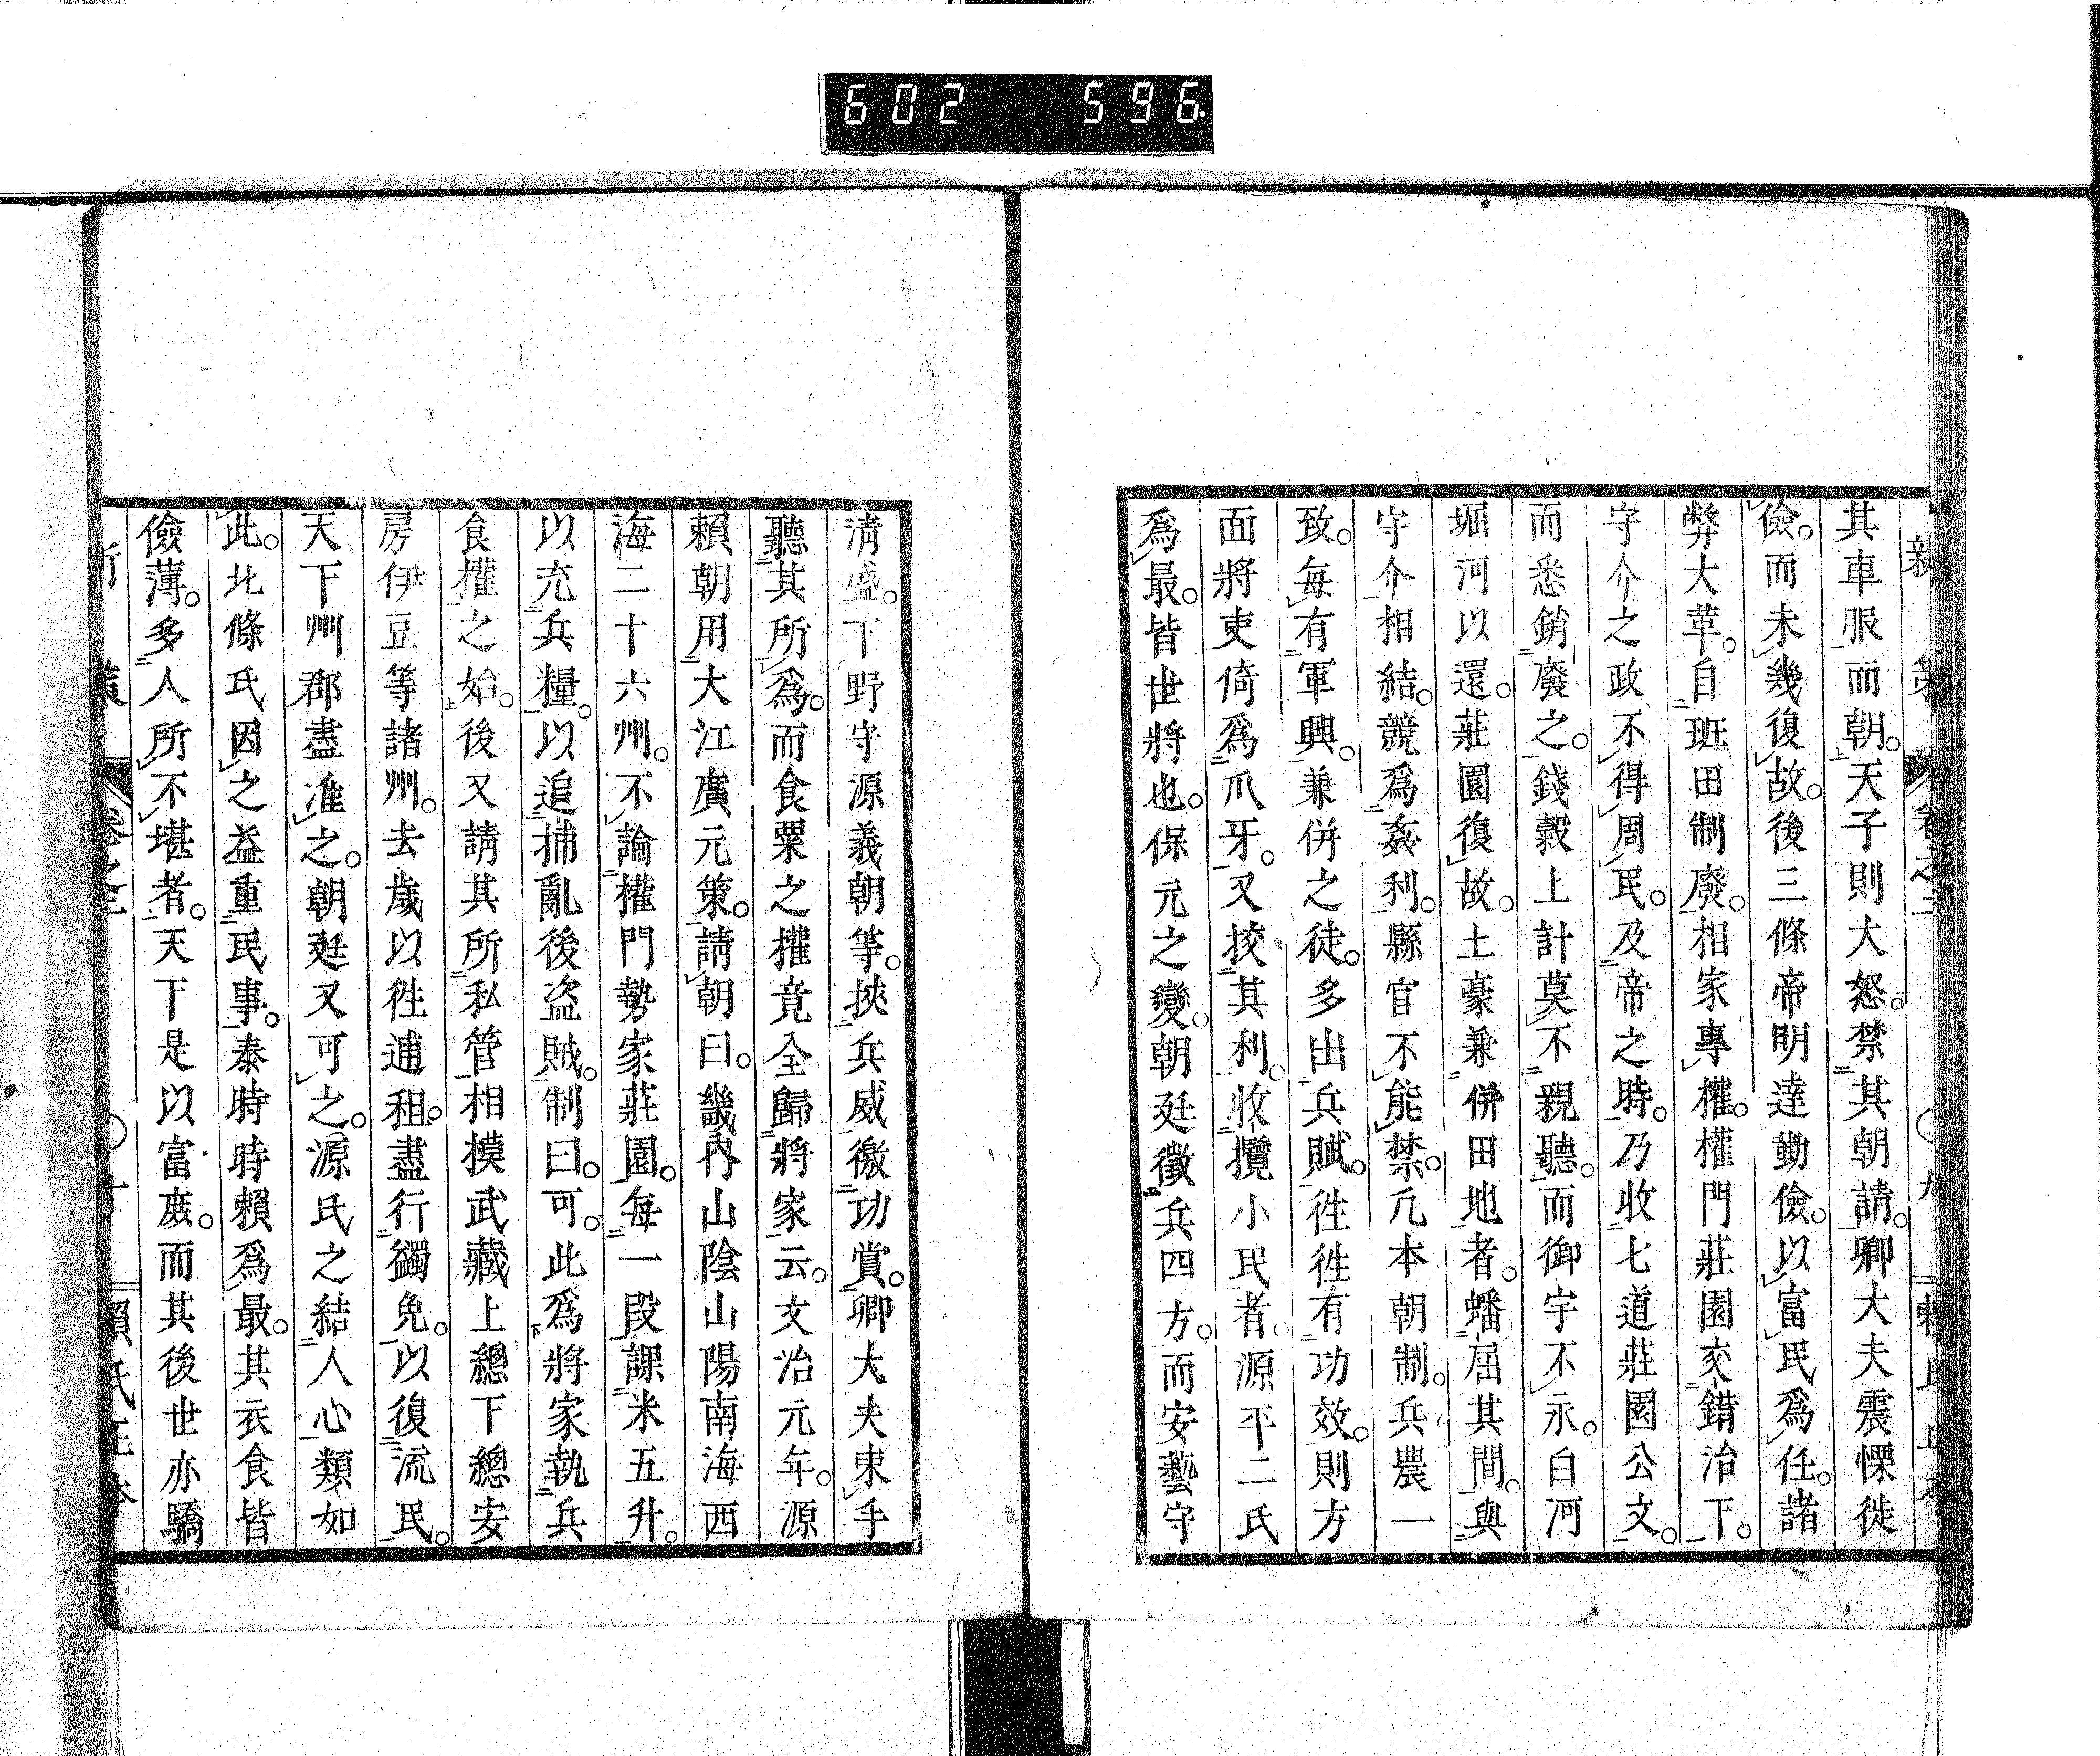 602 596
新策 卷之二 ○九 賴氏正本
其車服而朝。天子則大怒。禁其朝請。卿大夫震慄徙
儉。而未幾復故。後三條帝明達勤儉。以富民爲任。諸
弊大革。自班田制廢。相家專權。權門莊園交錯治下。
守介之政不得周民。及帝之時。乃收七道莊園公文。
而悉銷廢之。錢穀上計莫不親聽。而御宇不永。白河
堀河以還。莊園復故。土豪兼併田地者。蟠屈其間。與
守介相結。競爲姦利。縣官不能禁。凡本朝制。兵農一
致。每有軍興。兼併之徒。多出兵賦。徃徃有功效。則方
面將吏倚爲爪牙。又挍其利。收攬小民者。源平二氏
爲最。皆世將也。保元之變。朝廷徵兵四方。而安藝守
淸盛。下野守源義朝等。挾兵威徼功賞。卿大夫束手
聽其所爲。而食粟之權竟全歸將家云。文治元年。源
賴朝用大江廣元策。請朝曰。畿內山陰山陽南海西
海二十六州。不論權門勢家莊園。每一段課米五升。
以充兵糧。以追捕亂後盜賊。制曰。可。此爲將家執兵
食權之始。後又請其所私管相摸武藏上總下總安
房伊豆等諸州。去歲以徃逋租。盡行蠲免。以復流民。
天下州郡盡准之。朝廷又可之。源氏之結人心類如
此。北條氏因之益重民事。泰時時賴爲最。其衣食皆
儉薄。多人所不堪者。天下是以富庶。而其後世亦驕